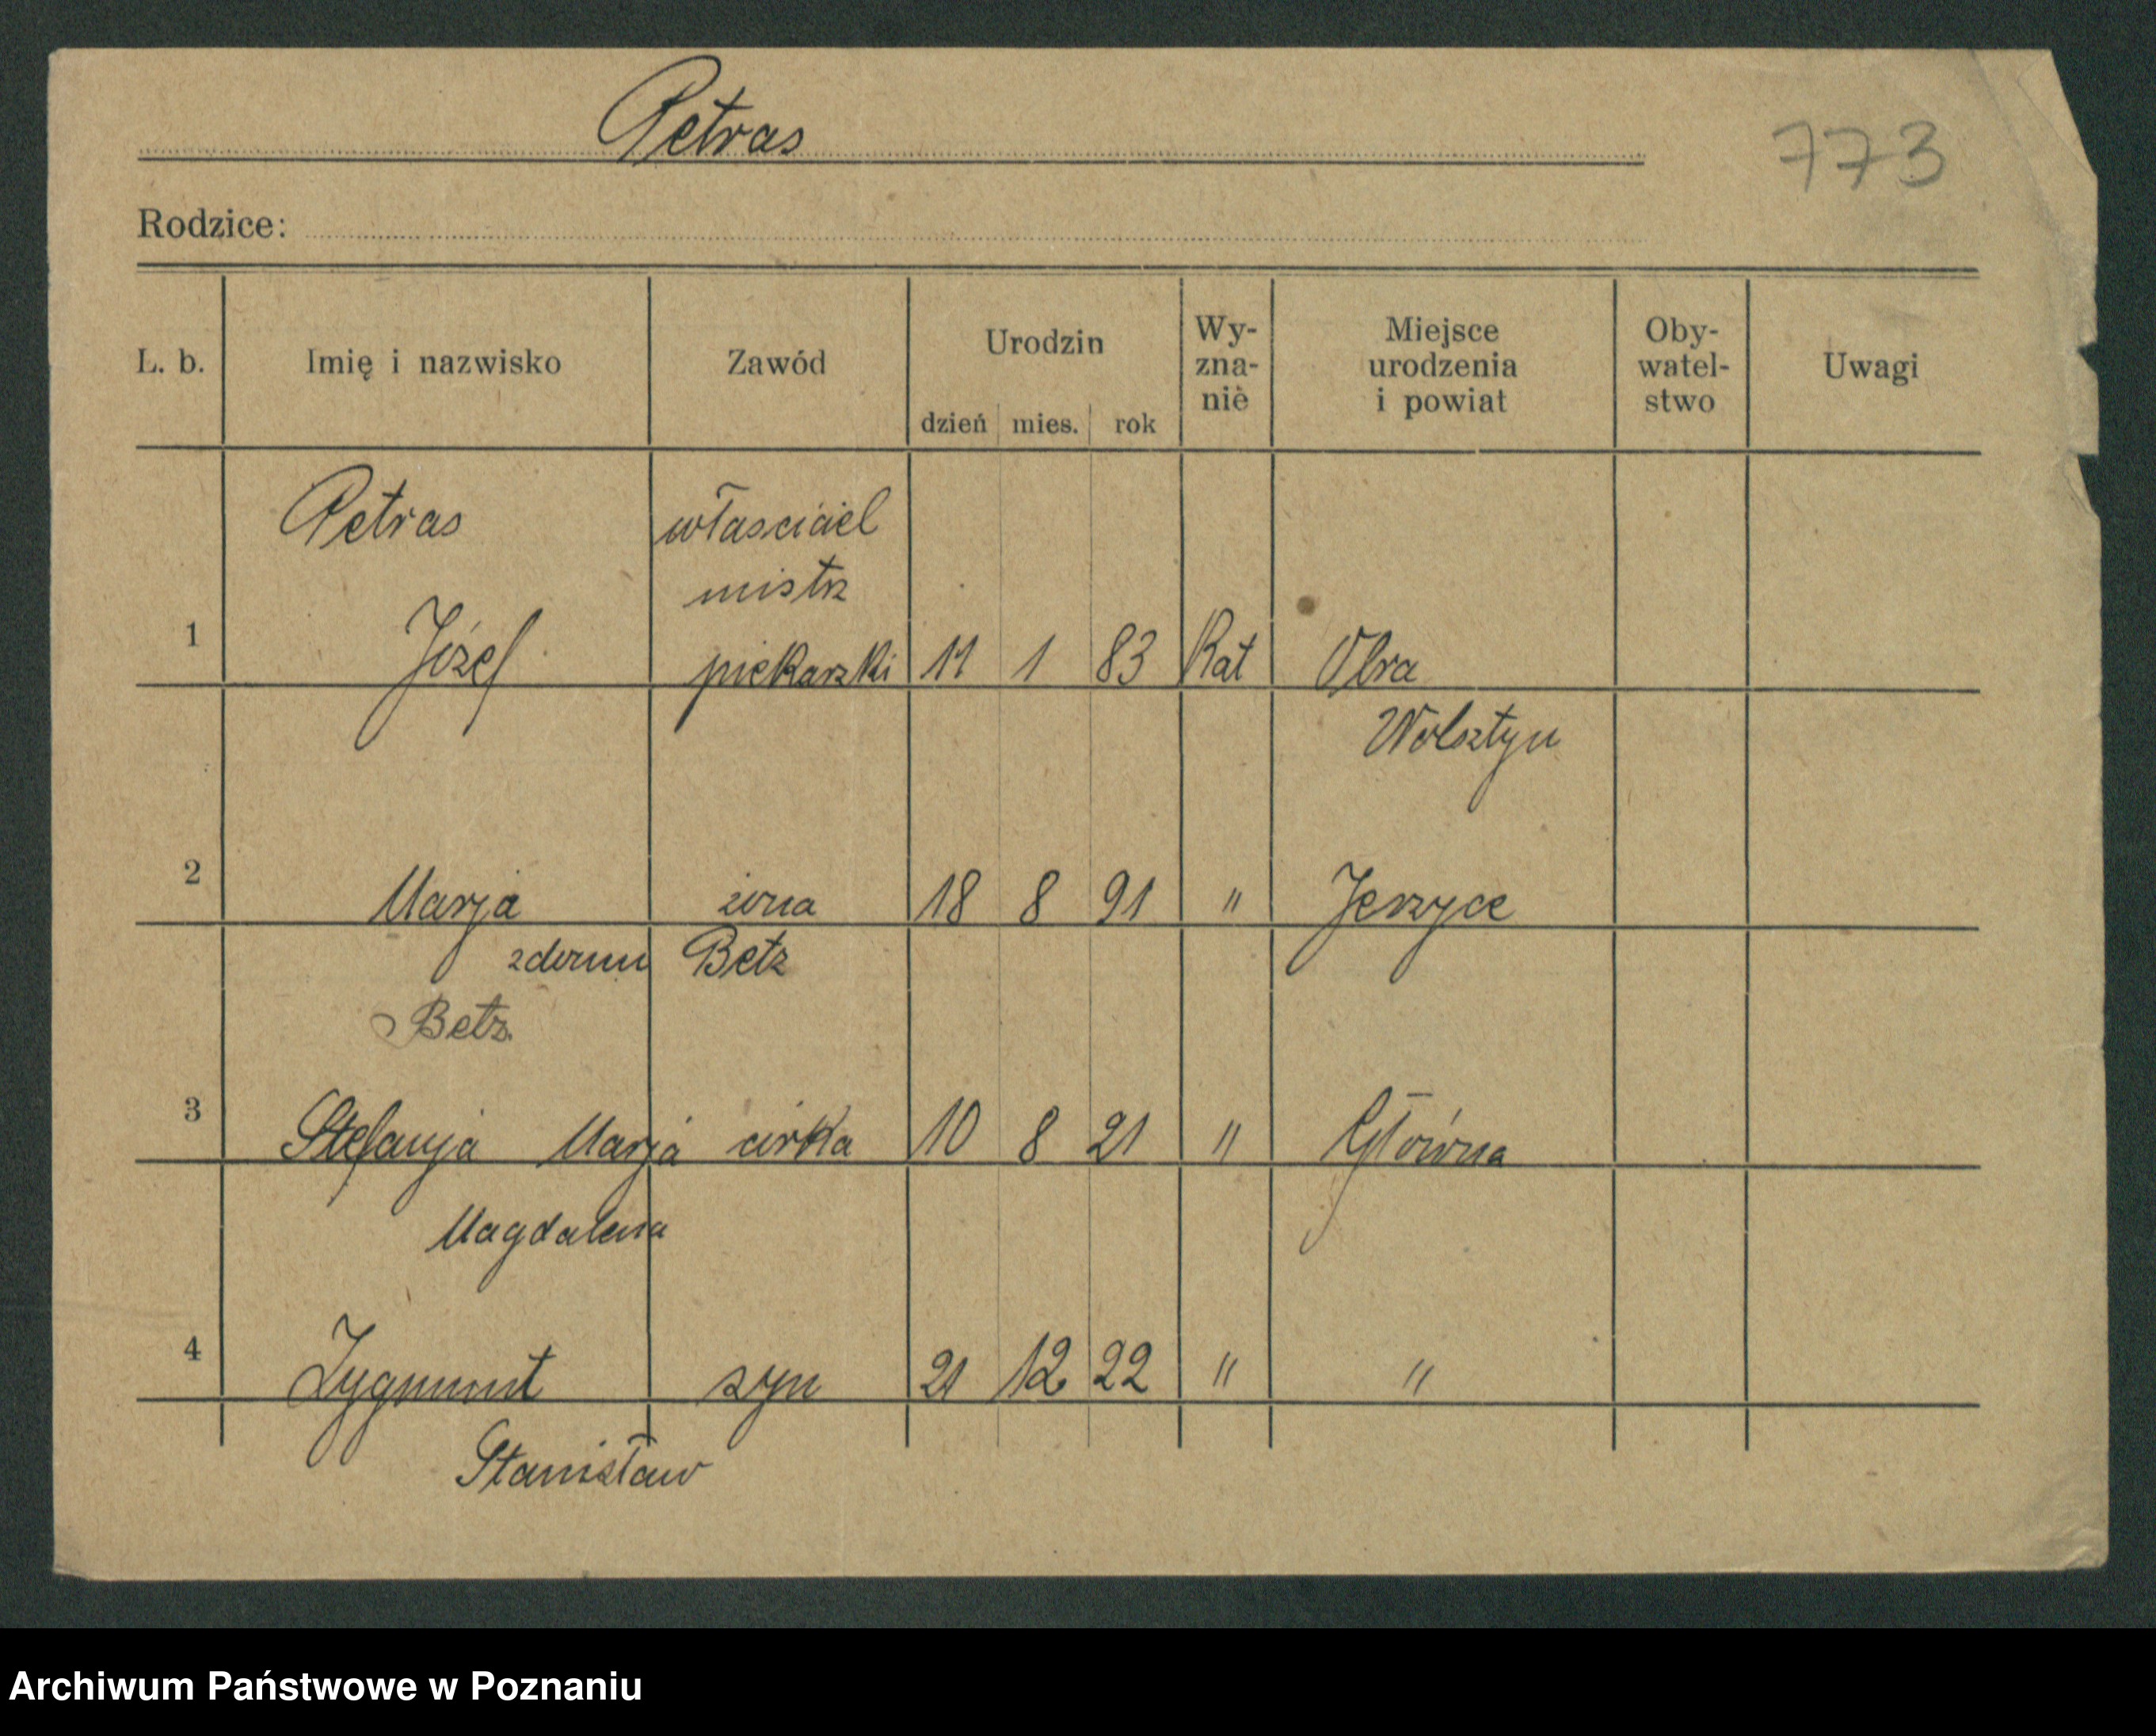 Petras
773
Rodzice:
L. b. Imię i nazwisko Zawód Urodzin dzień mies. rok Wy-zna-nie Miejsce urodzenia i powiat Oby-watel-stwo Uwagi
Petras właściciel
mistrz
1 Józef piekarski 11 1 83 Kat Obra
Wolsztyn
2 Marja żona 18 8 91 " Jerzyce
zdomu Betz
Betz.
3 Stefanja Marja córka 10 8 21 " Główna
Magdalena
4 Zygmunt syn 21 12 22 " "
Stanisław
Archiwum Państwowe w Poznaniu